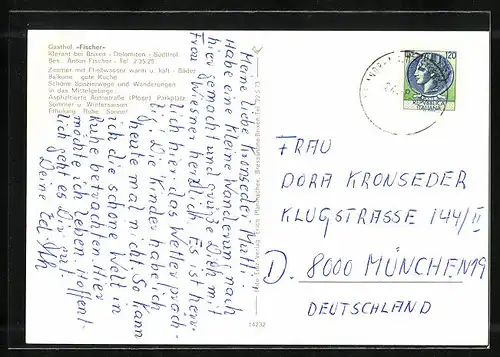 Gasthof «Fischer»
Klerant bei Brixen - Dolomiten - Südtirol
Bes. Anton Fischer - Tel. 2 35 25
Zimmer mit Fließwasser warm u. kalt - Bäder
Balkone - gute Küche
Schöne Spazierwege und Wanderungen
in das Mittelgebirge
Asphaltierte Autostraße (Plose) Parkplatz
Sommer u. Wintersaison
Erholung Ruhe Sonne!
Meine liebe Kronseder Mutti!
Habe eine kleine Wanderung nach
hier gemacht und grüße Dich mit
Frau Wiesner herzlich. Es ist herr-
lich hier das Wetter präch-
tig. Die Kinder habe ich
heute mal nicht. So kann
ich die schöne Welt in
Ruhe betrachten. Hier
möchte ich leben. Hoffent-
lich geht es Dir gut.
Deine
14232
120
FRAU
DORA KRONSEDER
KLUGSTRASSE 144/II
D. 8000 MÜNCHEN 19
DEUTSCHLAND